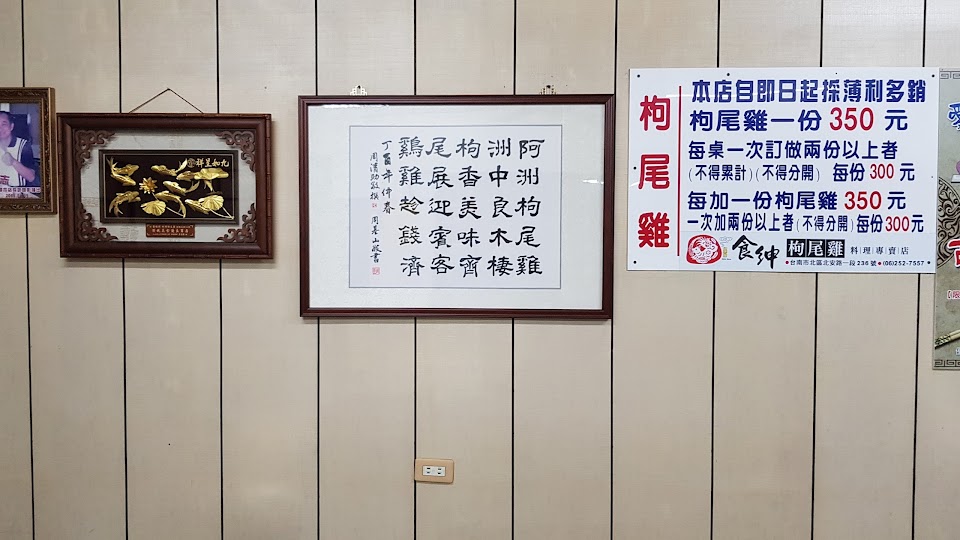 九如呈祥
阿洲枸尾雞
洲中良木棲
枸香美味齊
尾展迎賓客
鷄雞趁錢濟
丁酉年仲春
枸尾雞
本店自即日起採薄利多銷
枸尾雞一份 350 元
每桌一次訂做兩份以上者
(不得累計)(不得分開) 每份 300 元
每加一份枸尾雞 350 元
一次加兩份以上者(不得分開)每份300元
食紳 枸尾雞 料理專賣店
●台南市北區北安路一段236號●(06)252-7557